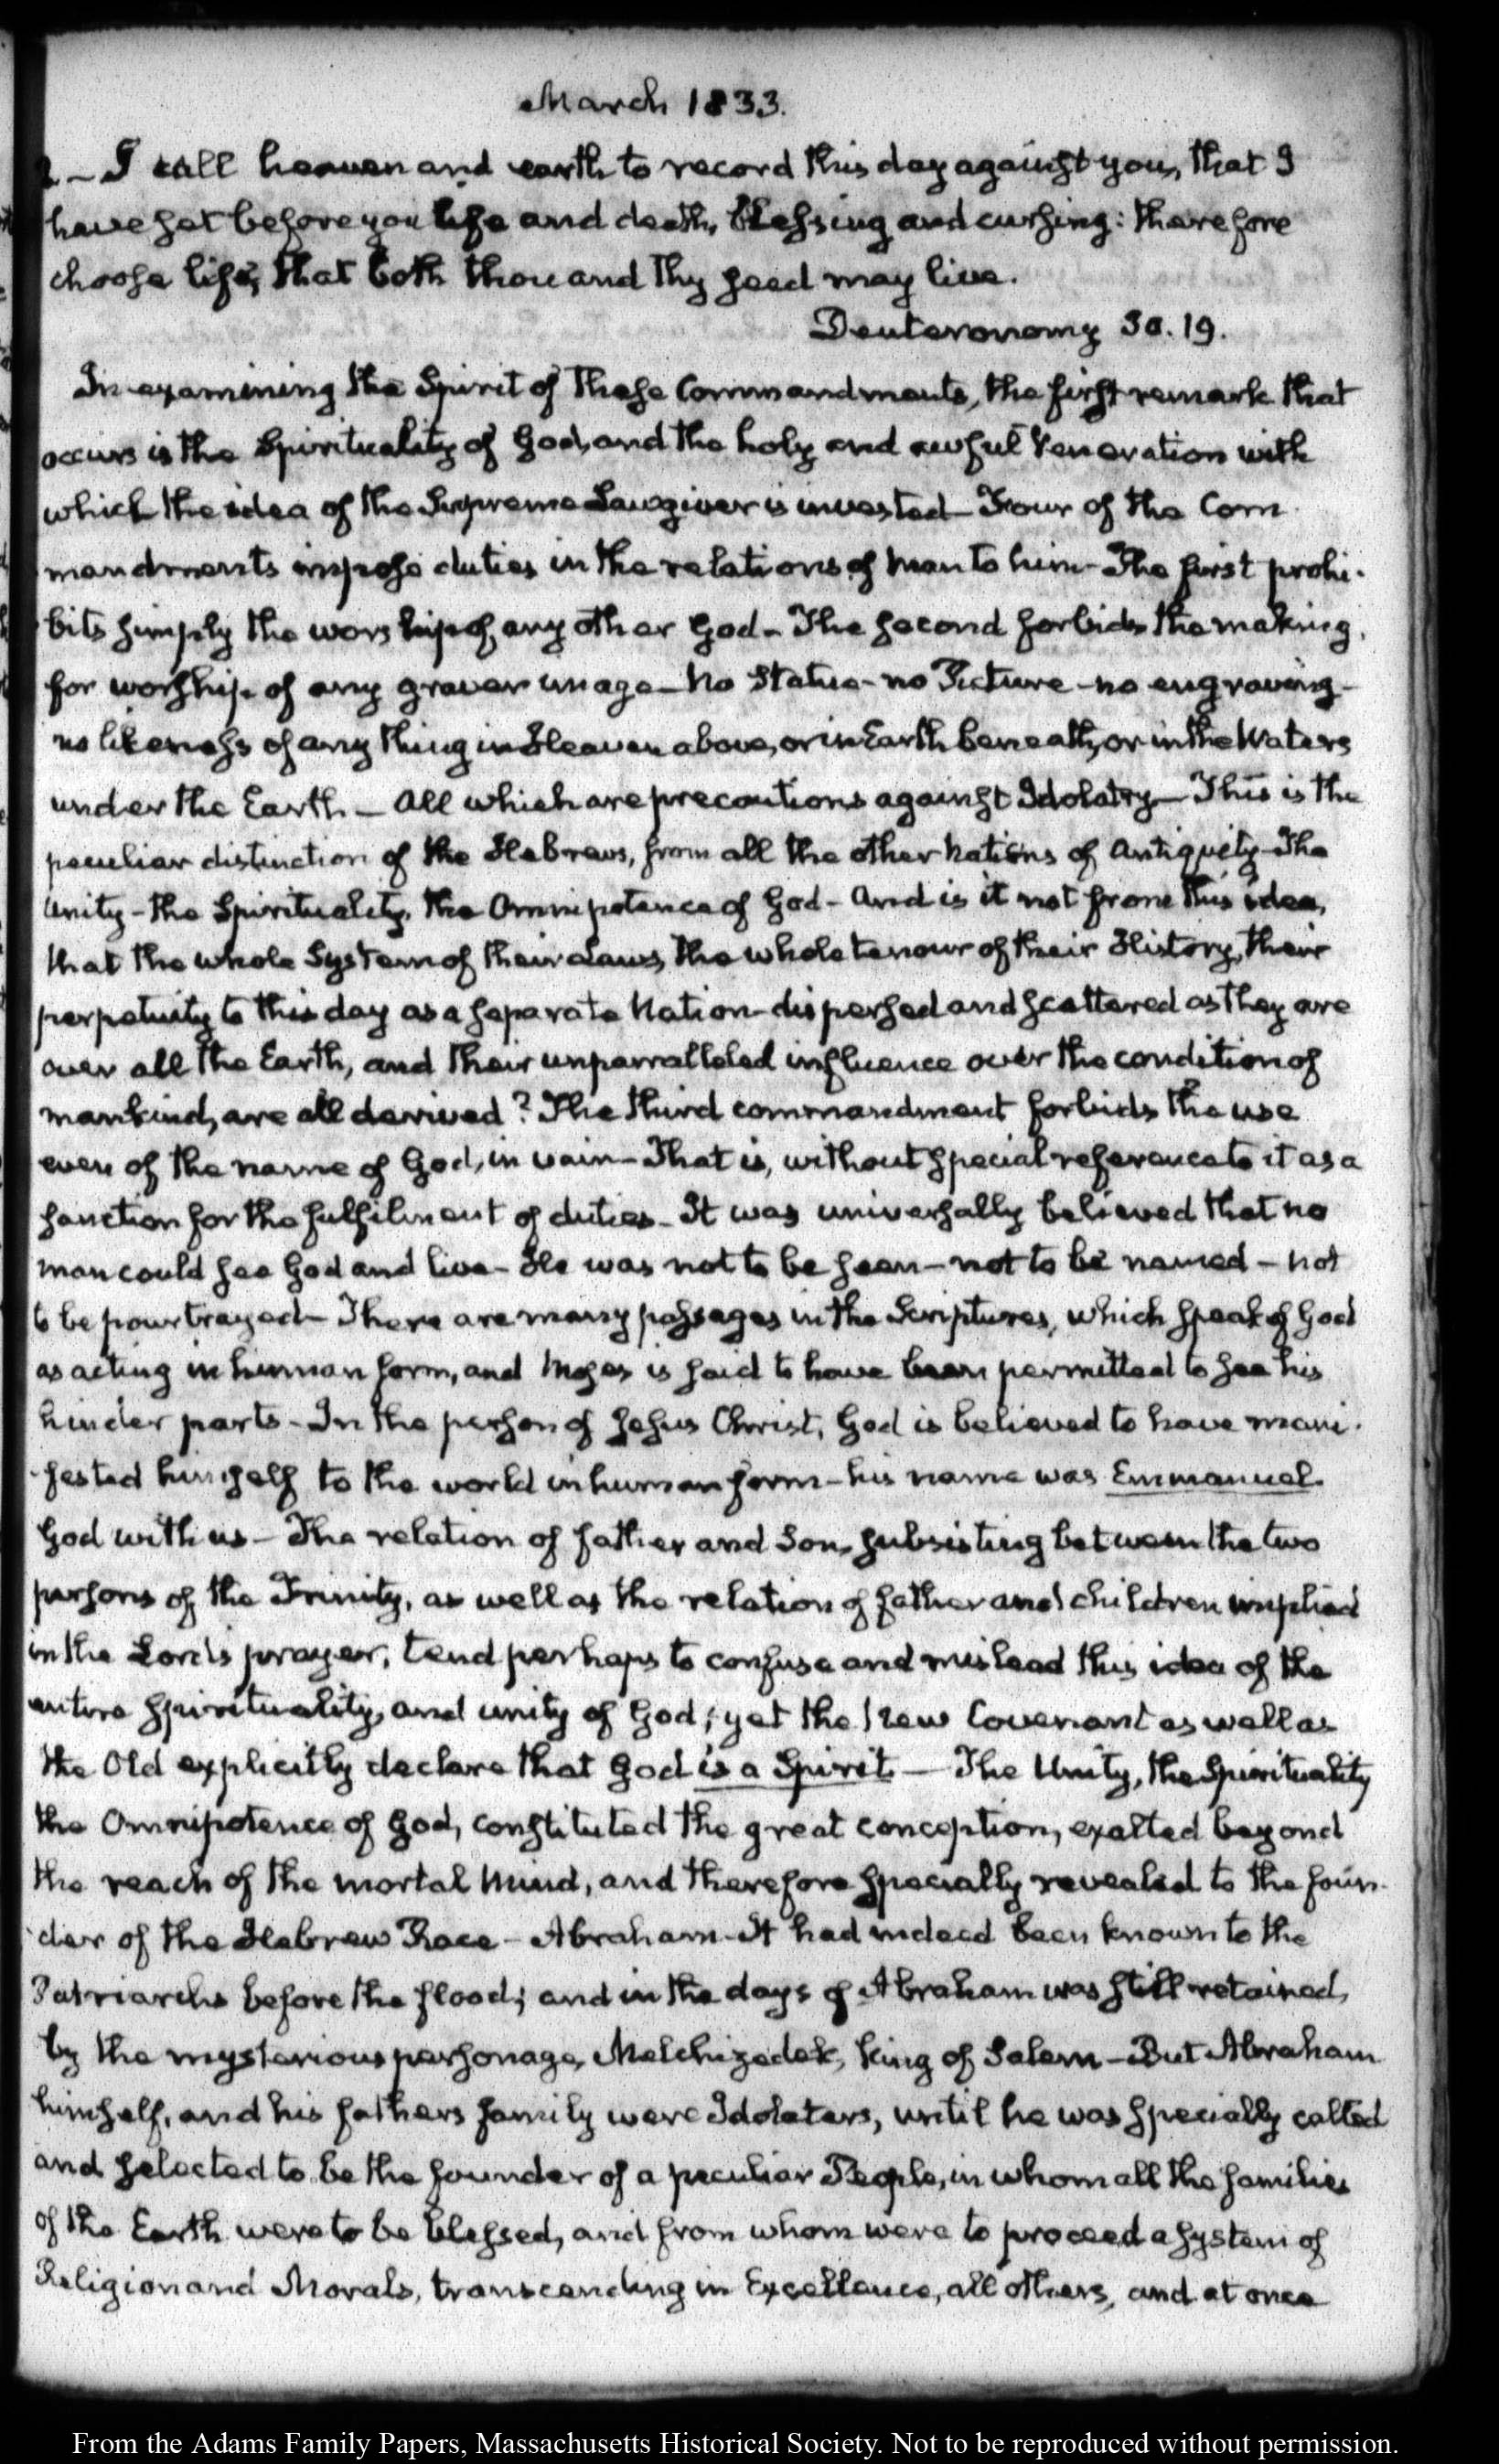 March 1833.
2 – I call heaven and earth to record this day against you, that I
have set before you life and death, blessing and cursing: therefore
choose life, that both thou and thy seed may live.
Deuteronomy 30. 19.
In examining the Spirit of these Commandments, the first remark that
occurs is the Spirituality of God, and the holy and awful Veneration with
which the idea of the Supreme Lawgiver is invested – Four of the Com-
mandments impose duties in the relations of man to him – The first prohi-
bits simply the worship of any other God – The second forbids the making,
for worship of any graven image – No Statue – no Picture – no engraving –
no likeness of any thing in Heaven above, or in Earth beneath, or in the Waters
under the Earth – All which are precautions against Idolatry – This is the
peculiar distinction of the Hebrews, from all the other Nations of Antiquity – The
Unity – the Spirituality, the Omnipotence of God – And is it not from this idea,
that the whole System of their Laws, the whole tenour of their History, their
perpetuity to this day as a separate Nation – dispersed and scattered as they are
over all the Earth, and their unparralleled influence over the condition of
mankind, are all derived? The third commandment forbids the use
even of the name of God, in vain – That is, without special reference to it as a
sanction for the fulfilment of duties – It was universally believed that no
man could see God and live – He was not to be seen – not to be named – not
to be pourtrayed – There are many passages in the Scriptures, which speak of God
as acting in human form, and Moses is said to have been permitted to see his
hinder parts – In the person of Jesus Christ, God is believed to have mani-
fested himself to the world in human form – his name was Emmanuel
God with us – The relation of father and Son, subsisting between the two
persons of the Trinity, as well as the relation of father and children implied
in the Lord's prayer, tend perhaps to confuse and mislead this idea of the
entire spirituality, and unity of God; yet the New Covenant as well as
the Old explicitly declare that God is a Spirit – The Unity, the Spirituality
the Omnipotence of God, constituted the great conception, exalted beyond
the reach of the mortal Mind, and therefore specially revealed to the foun-
der of the Hebrew Race – Abraham – It had indeed been known to the
Patriarchs before the flood; and in the days of Abraham was still retained,
by the mysterious personage, Melchizedek, King of Salem – But Abraham
himself, and his fathers family were Idolaters, until he was specially called
and selected to be the founder of a peculiar People, in whom all the families
of the Earth were to be blessed, and from whom were to proceed a system of
Religion and Morals, transcending in Excellence, all others, and at once
From the Adams Family Papers, Massachusetts Historical Society. Not to be reproduced without permission.